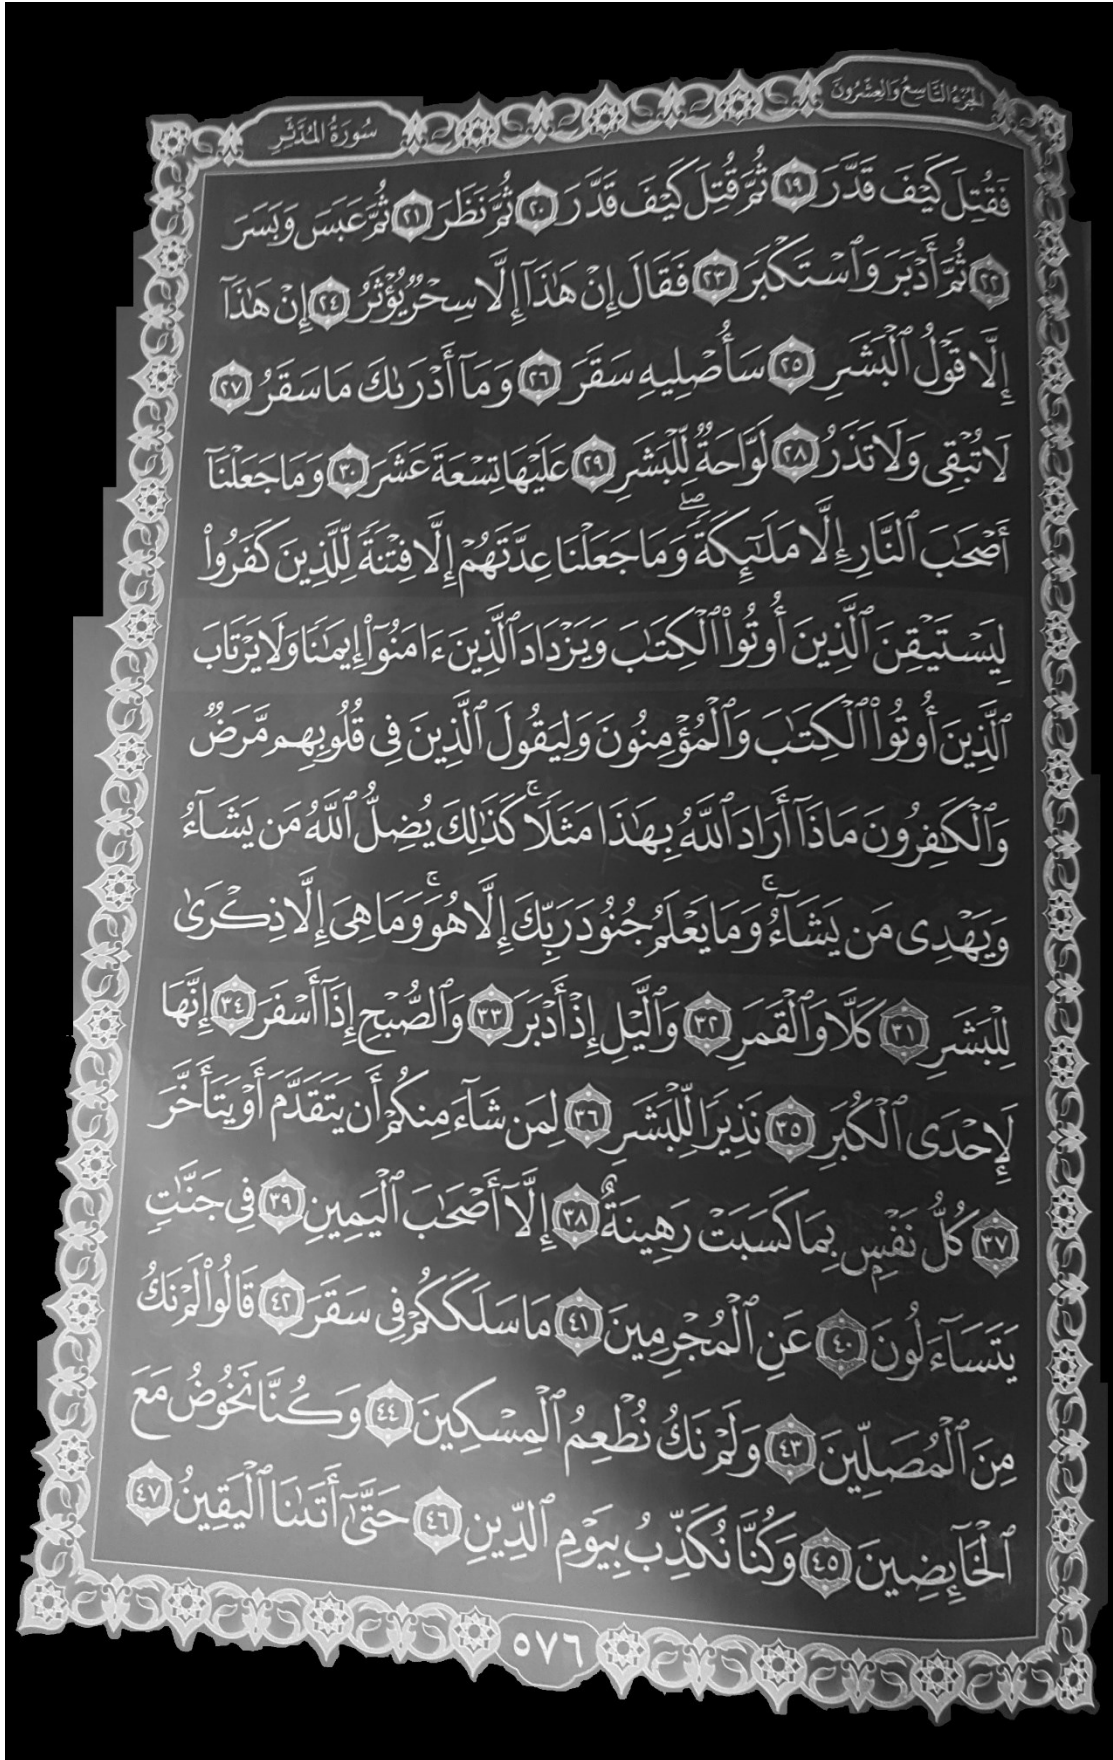 الجزء التاسع والعشرون
سورة المدثر
فَقُتِلَ كَيْفَ قَدَّرَ ١٩ ثُمَّ قُتِلَ كَيْفَ قَدَّرَ ٢٠ ثُمَّ نَظَرَ ٢١ ثُمَّ عَبَسَ وَبَسَرَ
٢٢ ثُمَّ أَدْبَرَ وَٱسْتَكْبَرَ ٢٣ فَقَالَ إِنْ هَٰذَآ إِلَّا سِحْرٌ يُؤْثَرُ ٢٤ إِنْ هَٰذَآ
إِلَّا قَوْلُ ٱلْبَشَرِ ٢٥ سَأُصْلِيهِ سَقَرَ ٢٦ وَمَآ أَدْرَىٰكَ مَا سَقَرُ ٢٧
لَا تُبْقِى وَلَا تَذَرُ ٢٨ لَوَّاحَةٌ لِّلْبَشَرِ ٢٩ عَلَيْهَا تِسْعَةَ عَشَرَ ٣٠ وَمَا جَعَلْنَآ
أَصْحَٰبَ ٱلنَّارِ إِلَّا مَلَٰٓئِكَةً ۖ وَمَا جَعَلْنَا عِدَّتَهُمْ إِلَّا فِتْنَةً لِّلَّذِينَ كَفَرُوا۟
لِيَسْتَيْقِنَ ٱلَّذِينَ أُوتُوا۟ ٱلْكِتَٰبَ وَيَزْدَادَ ٱلَّذِينَ ءَامَنُوٓا۟ إِيمَٰنًا وَلَا يَرْتَابَ
ٱلَّذِينَ أُوتُوا۟ ٱلْكِتَٰبَ وَٱلْمُؤْمِنُونَ وَلِيَقُولَ ٱلَّذِينَ فِى قُلُوبِهِم مَّرَضٌ
وَٱلْكَٰفِرُونَ مَاذَآ أَرَادَ ٱللَّهُ بِهَٰذَا مَثَلًا ۚ كَذَٰلِكَ يُضِلُّ ٱللَّهُ مَن يَشَآءُ
وَيَهْدِى مَن يَشَآءُ ۚ وَمَا يَعْلَمُ جُنُودَ رَبِّكَ إِلَّا هُوَ ۚ وَمَا هِىَ إِلَّا ذِكْرَىٰ
لِلْبَشَرِ ٣١ كَلَّا وَٱلْقَمَرِ ٣٢ وَٱلَّيْلِ إِذْ أَدْبَرَ ٣٣ وَٱلصُّبْحِ إِذَآ أَسْفَرَ ٣٤ إِنَّهَا
لَإِحْدَى ٱلْكُبَرِ ٣٥ نَذِيرًا لِّلْبَشَرِ ٣٦ لِمَن شَآءَ مِنكُمْ أَن يَتَقَدَّمَ أَوْ يَتَأَخَّرَ
٣٧ كُلُّ نَفْسٍۭ بِمَا كَسَبَتْ رَهِينَةٌ ٣٨ إِلَّآ أَصْحَٰبَ ٱلْيَمِينِ ٣٩ فِى جَنَّٰتٍ
يَتَسَآءَلُونَ ٤٠ عَنِ ٱلْمُجْرِمِينَ ٤١ مَا سَلَكَكُمْ فِى سَقَرَ ٤٢ قَالُوا۟ لَمْ نَكُ
مِنَ ٱلْمُصَلِّينَ ٤٣ وَلَمْ نَكُ نُطْعِمُ ٱلْمِسْكِينَ ٤٤ وَكُنَّا نَخُوضُ مَعَ
ٱلْخَآئِضِينَ ٤٥ وَكُنَّا نُكَذِّبُ بِيَوْمِ ٱلدِّينِ ٤٦ حَتَّىٰٓ أَتَىٰنَا ٱلْيَقِينُ ٤٧
٥٧٦